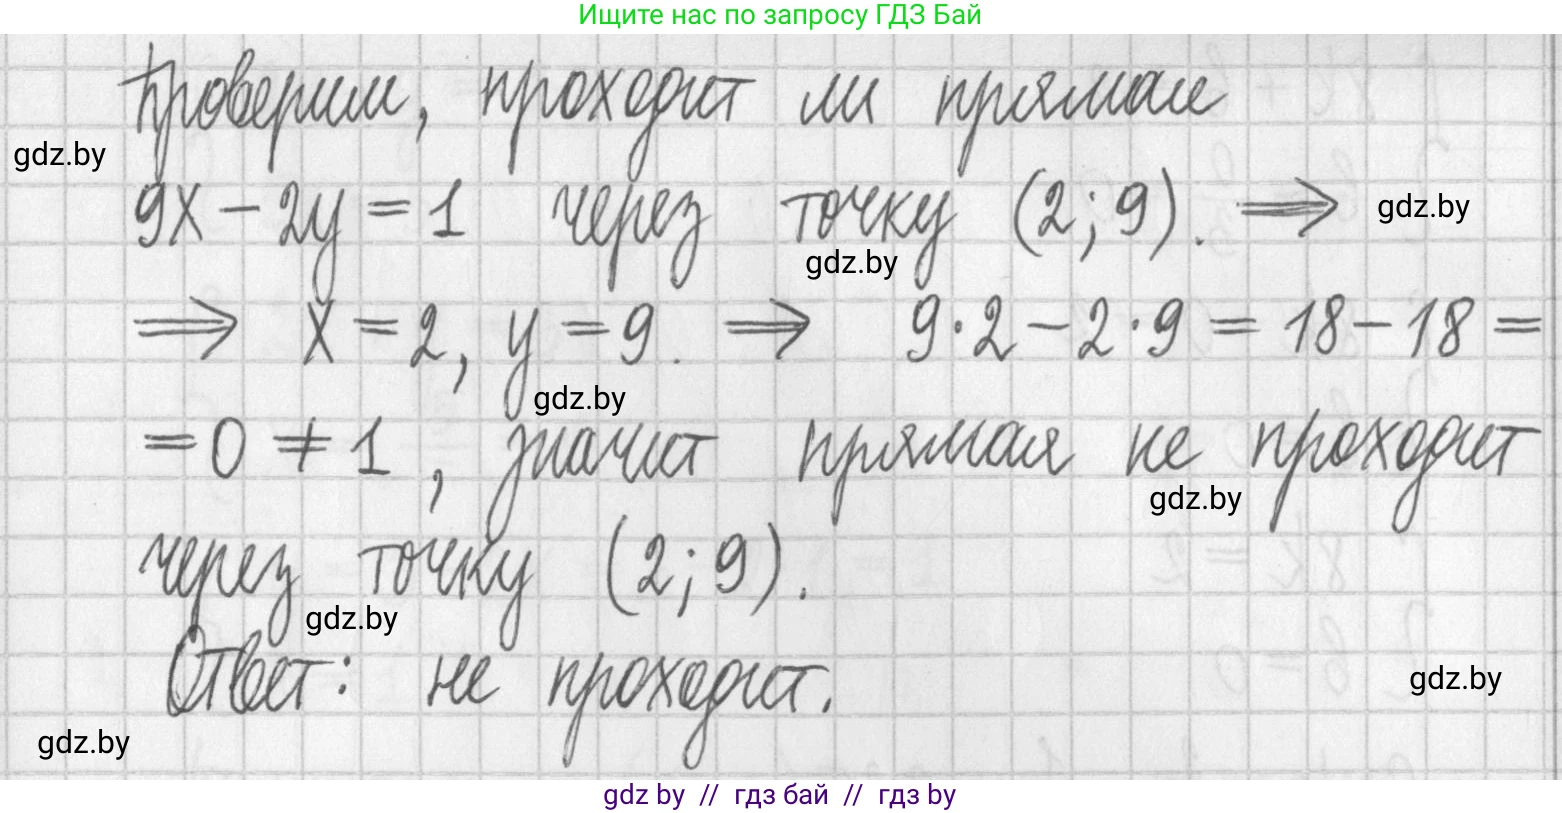 Ищите нас по запросу ГДЗ Бай
Проверим, проходит ли прямая
gdz.by
9x - 2y = 1 через точку (2; 9). ⇒ gdz.by
gdz.by
⇒ x = 2, y = 9. ⇒ 9·2 - 2·9 = 18 - 18 =
gdz.by
= 0 ≠ 1, значит прямая не проходит
gdz.by
через точку (2; 9).
gdz.by
Ответ: не проходит.
gdz.by
gdz.by
gdz by // гдз бай // гдз by